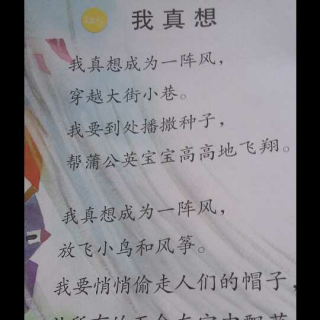 我真想
我真想成为一阵风，
穿越大街小巷。
我要到处播撒种子，
帮蒲公英宝宝高高地飞翔。
我真想成为一阵风，
放飞小鸟和风筝。
我要悄悄偷走人们的帽子，